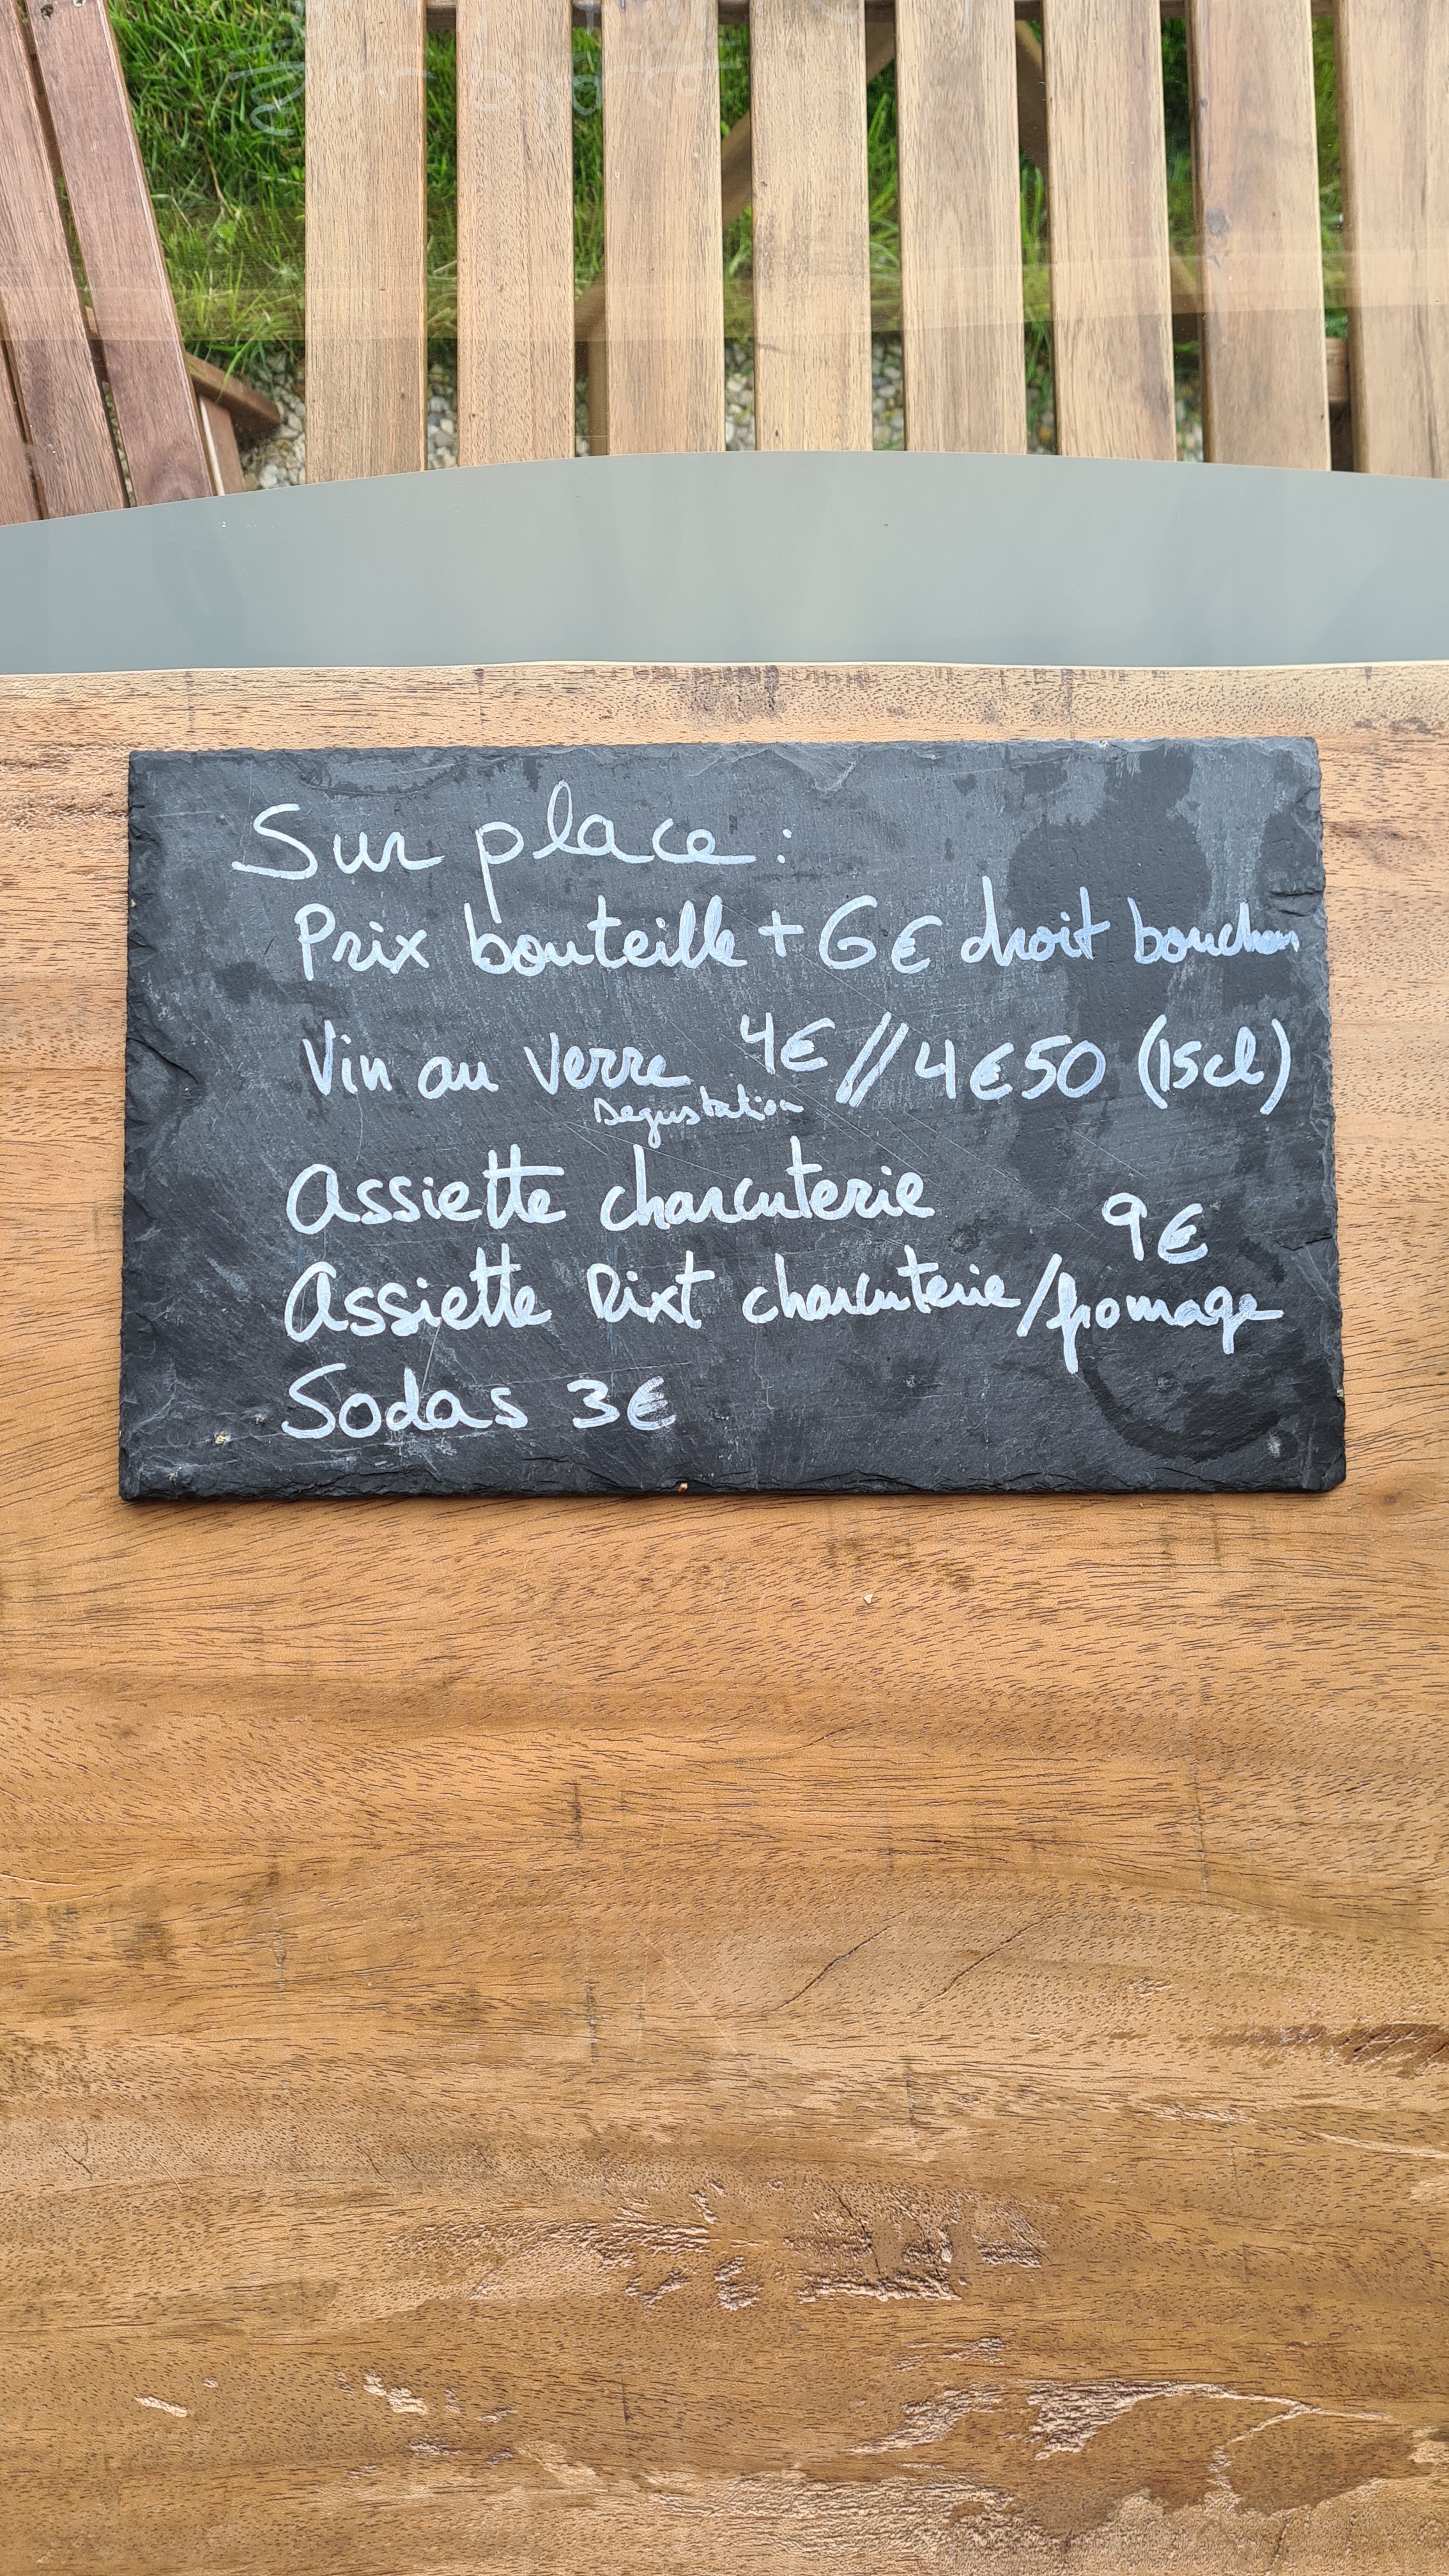 Sur place :
Prix bouteille + 6€ droit bouchon
Vin au verre 4€ // 4€50 (15cl)
Degustation
Assiette charcuterie
9€
Assiette Mixt charcuterie/fromage
Sodas 3€